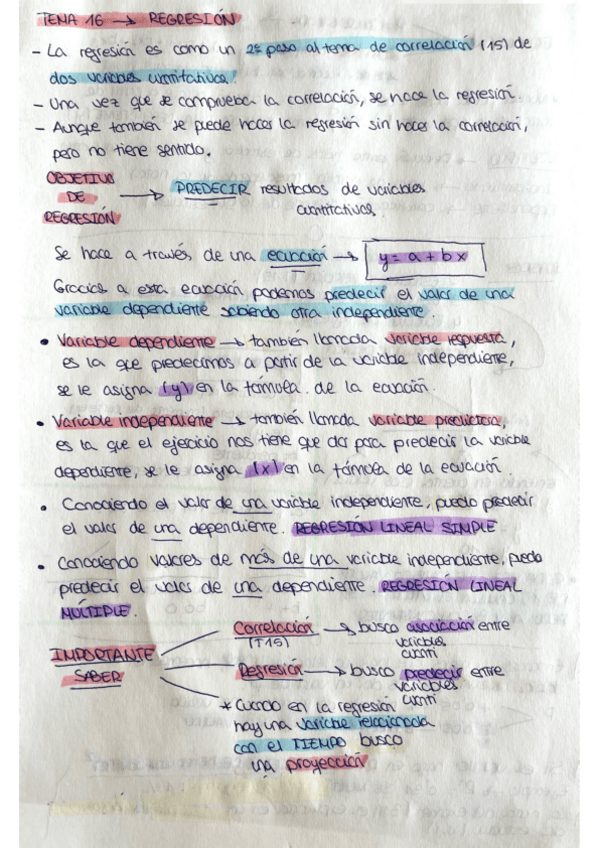 TEMA 16 → REGRESIÓN
- La regresión es como un 2º paso al tema de correlación (15) de
dos variables cuantitativas!
- Una vez que se comprueba la correlación, se hace la regresión.
- Aunque también se puede hacer la regresión sin hacer la correlación,
pero no tiene sentido.
OBJETIVO
DE
REGRESIÓN
→ PREDECIR resultados de variables
cuantitativas.
Se hace a través de una ecuación → y = a + bx
Gracias a esta ecuación podemos predecir el valor de una
variable dependiente sabiendo otra independiente.
• Variable dependiente → también llamada variable respuesta,
es la que predecimos a partir de la variable independiente,
se le asigna (y) en la fórmula. de la ecuación.
• Variable independiente → también llamada variable predictora,
es la que el ejercicio nos tiene que dar para predecir la variable
dependiente, se le asigna (x) en la fórmula de la ecuación.
• Conociendo el valor de una variable independiente, puedo predecir
el valor de una dependiente. REGRESIÓN LINEAL SIMPLE
• Conociendo valores de más de una variable independiente, puedo
predecir el valor de una dependiente. REGRESIÓN LINEAL
MÚLTIPLE.
IMPORTANTE
SABER
Correlación → busco asociación entre
(T15) variables
cuanti
Regresión → busco predecir entre
variables
cuanti
* Cuando en la regresión
hay una variable relacionada
con el TIEMPO busco
una proyección